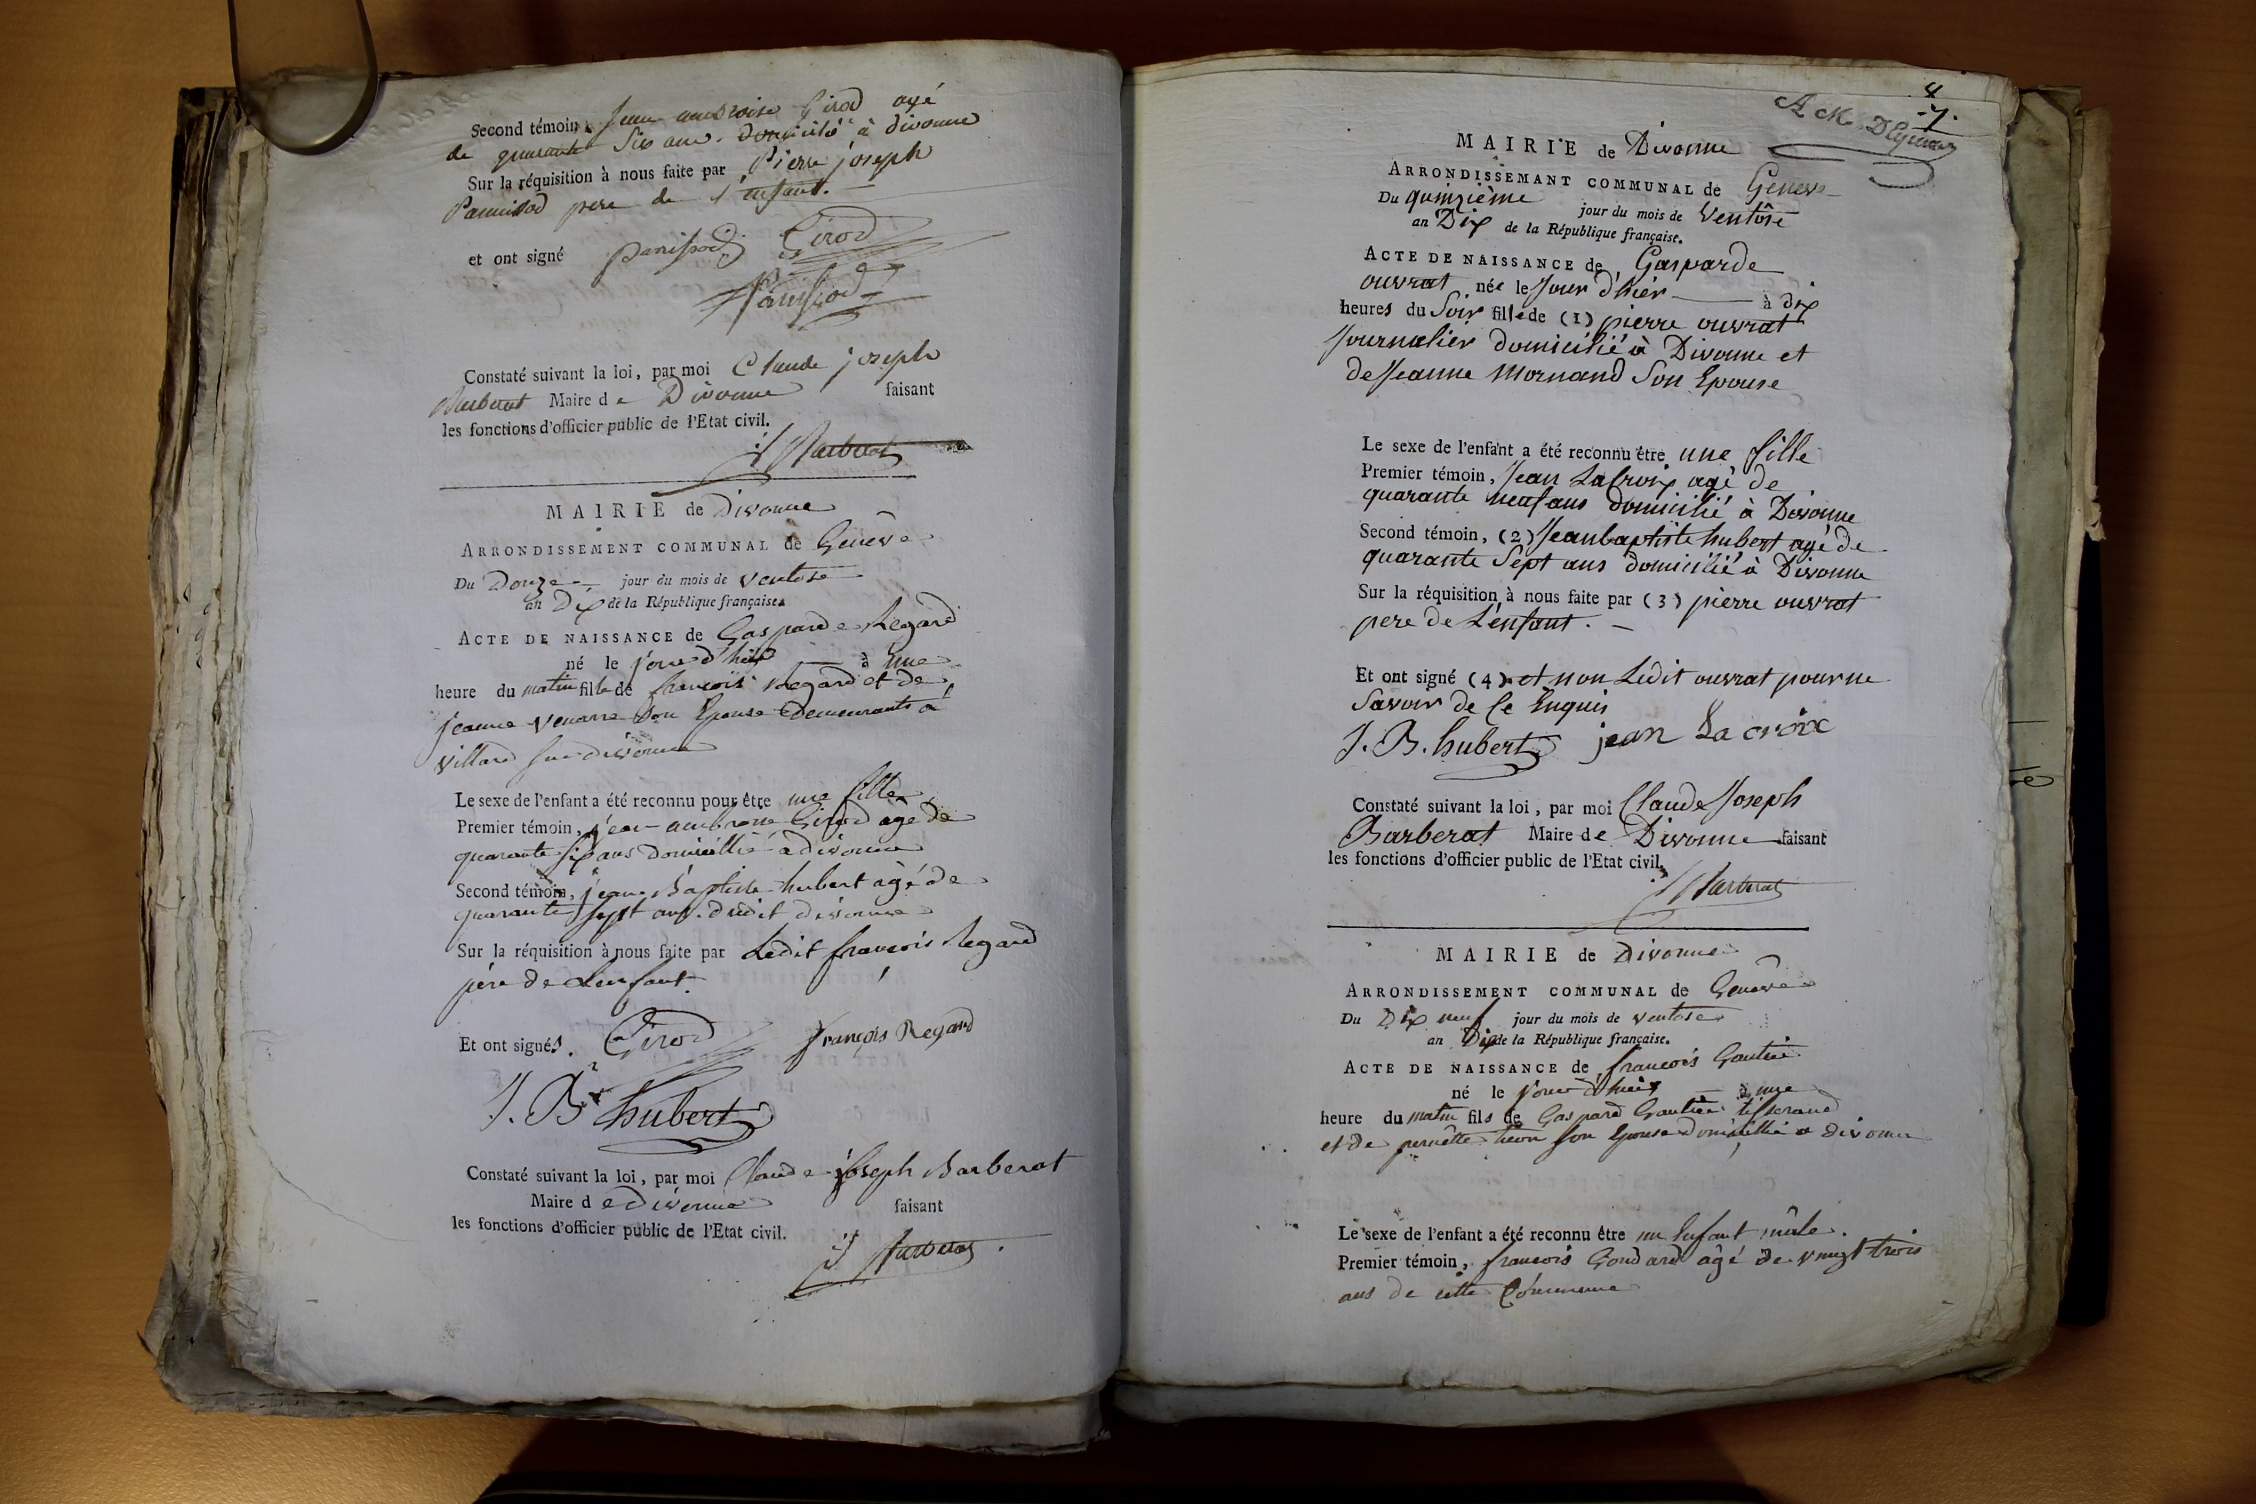 Second témoin, Jean ambroise Girod agé
de quarante Six ans. domicilié à divonne
Sur la réquisition à nous faite par Pierre joseph
Panissod pere de l'enfant.
et ont signé panissod Girod
Panissod
Constaté suivant la loi, par moi Claude joseph
Barberat Maire de Divonne faisant
les fonctions d'officier public de l'Etat civil.
Barberat
MAIRIE de Divonne
ARRONDISSEMENT COMMUNAL de Genève
Du Douze jour du mois de ventose
an Dix de la République française.
ACTE DE NAISSANCE de Gasparde Regard
né le jour d'hier à une
heure du matin fille de françois Regard et de
jeanne son Epouse demeurants à
villard sur divonne
Le sexe de l'enfant a été reconnu pour être une fille
Premier témoin, jean ambroise Girod agé de
quarante six ans domicillié à divonne
Second témoin, jean Baptiste hubert agé de
quarante sept ans dudit divonne
Sur la réquisition à nous faite par Ledit françois Regard
père de Lenfant.
Et ont signés. Girod françois Regard
J. Bte hubert
Constaté suivant la loi, par moi Claude joseph Barberat
Maire de Divonne faisant
les fonctions d'officier public de l'Etat civil.
Barberat
8
7.
MAIRIE de Divonne
ARRONDISSEMANT COMMUNAL de Geneve
Du quinzième jour du mois de Ventôse
an Dix de la République française.
ACTE DE NAISSANCE de Gasparde
ouvrat née le Jour d'hiér à dix
heures du Soir fille de (1) pierre ouvrat
Journaliér domicilié à Divonne et
de Jeanne Mornand Son Epouse
Le sexe de l'enfant a été reconnu être une fille
Premier témoin, Jean LaCroix agé de
quarante neuf ans domicilié à Divonne
Second témoin, (2) Jean baptiste hubert agé de
quarante Sept ans domicilié à Divonne
Sur la réquisition à nous faite par (3) pierre ouvrat
pere de L'énfant.
Et ont signé (4) et non Ledit ouvrat pour ne
Savoir de Ce Enquis
J. B. hubert jean La croix
Constaté suivant la loi, par moi Claude Joseph
Barberat Maire de Divonne faisant
les fonctions d'officier public de l'Etat civil.
Barberat
MAIRIE de Divonne
ARRONDISSEMENT COMMUNAL de Genève
Du Dix neuf jour du mois de ventose
an Dix de la République française.
ACTE DE NAISSANCE de françois Gautier
né le Jour d'hier, à une
heure du matin fils de Gaspard Gautier tisserand
et de pernètte son Epouse domicillié a divonne
Le sexe de l'enfant a été reconnu être un Enfant mâle.
Premier témoin, françois Goudard âgé de vingt trois
ans de cette Commune